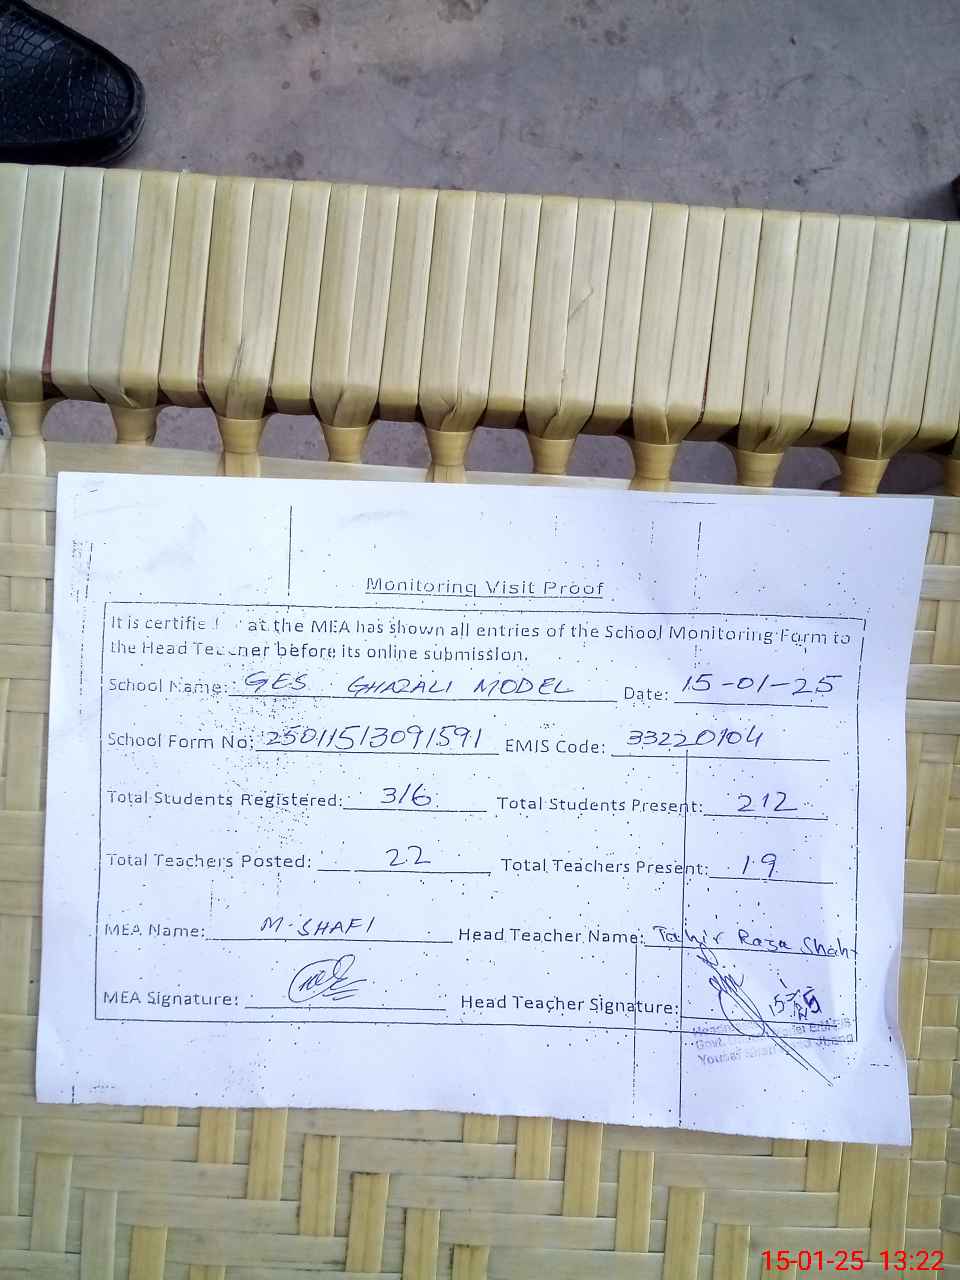 Monitoring Visit Proof
It is certifie at the MEA has shown all entries of the School Monitoring Form to
the Head Teacher before its online submission.
School Name: GES GHAZALI MODEL Date: 15-01-25
School Form No: 25011513091591 EMIS Code: 33220104
Total Students Registered: 316 Total Students Present: 212
Total Teachers Posted: 22 Total Teachers Present: 19
MEA Name: M. SHAFI Head Teacher Name: Tahir Raza Shah
MEA Signature: Head Teacher Signature:
Govt.
15-01-25 13:22